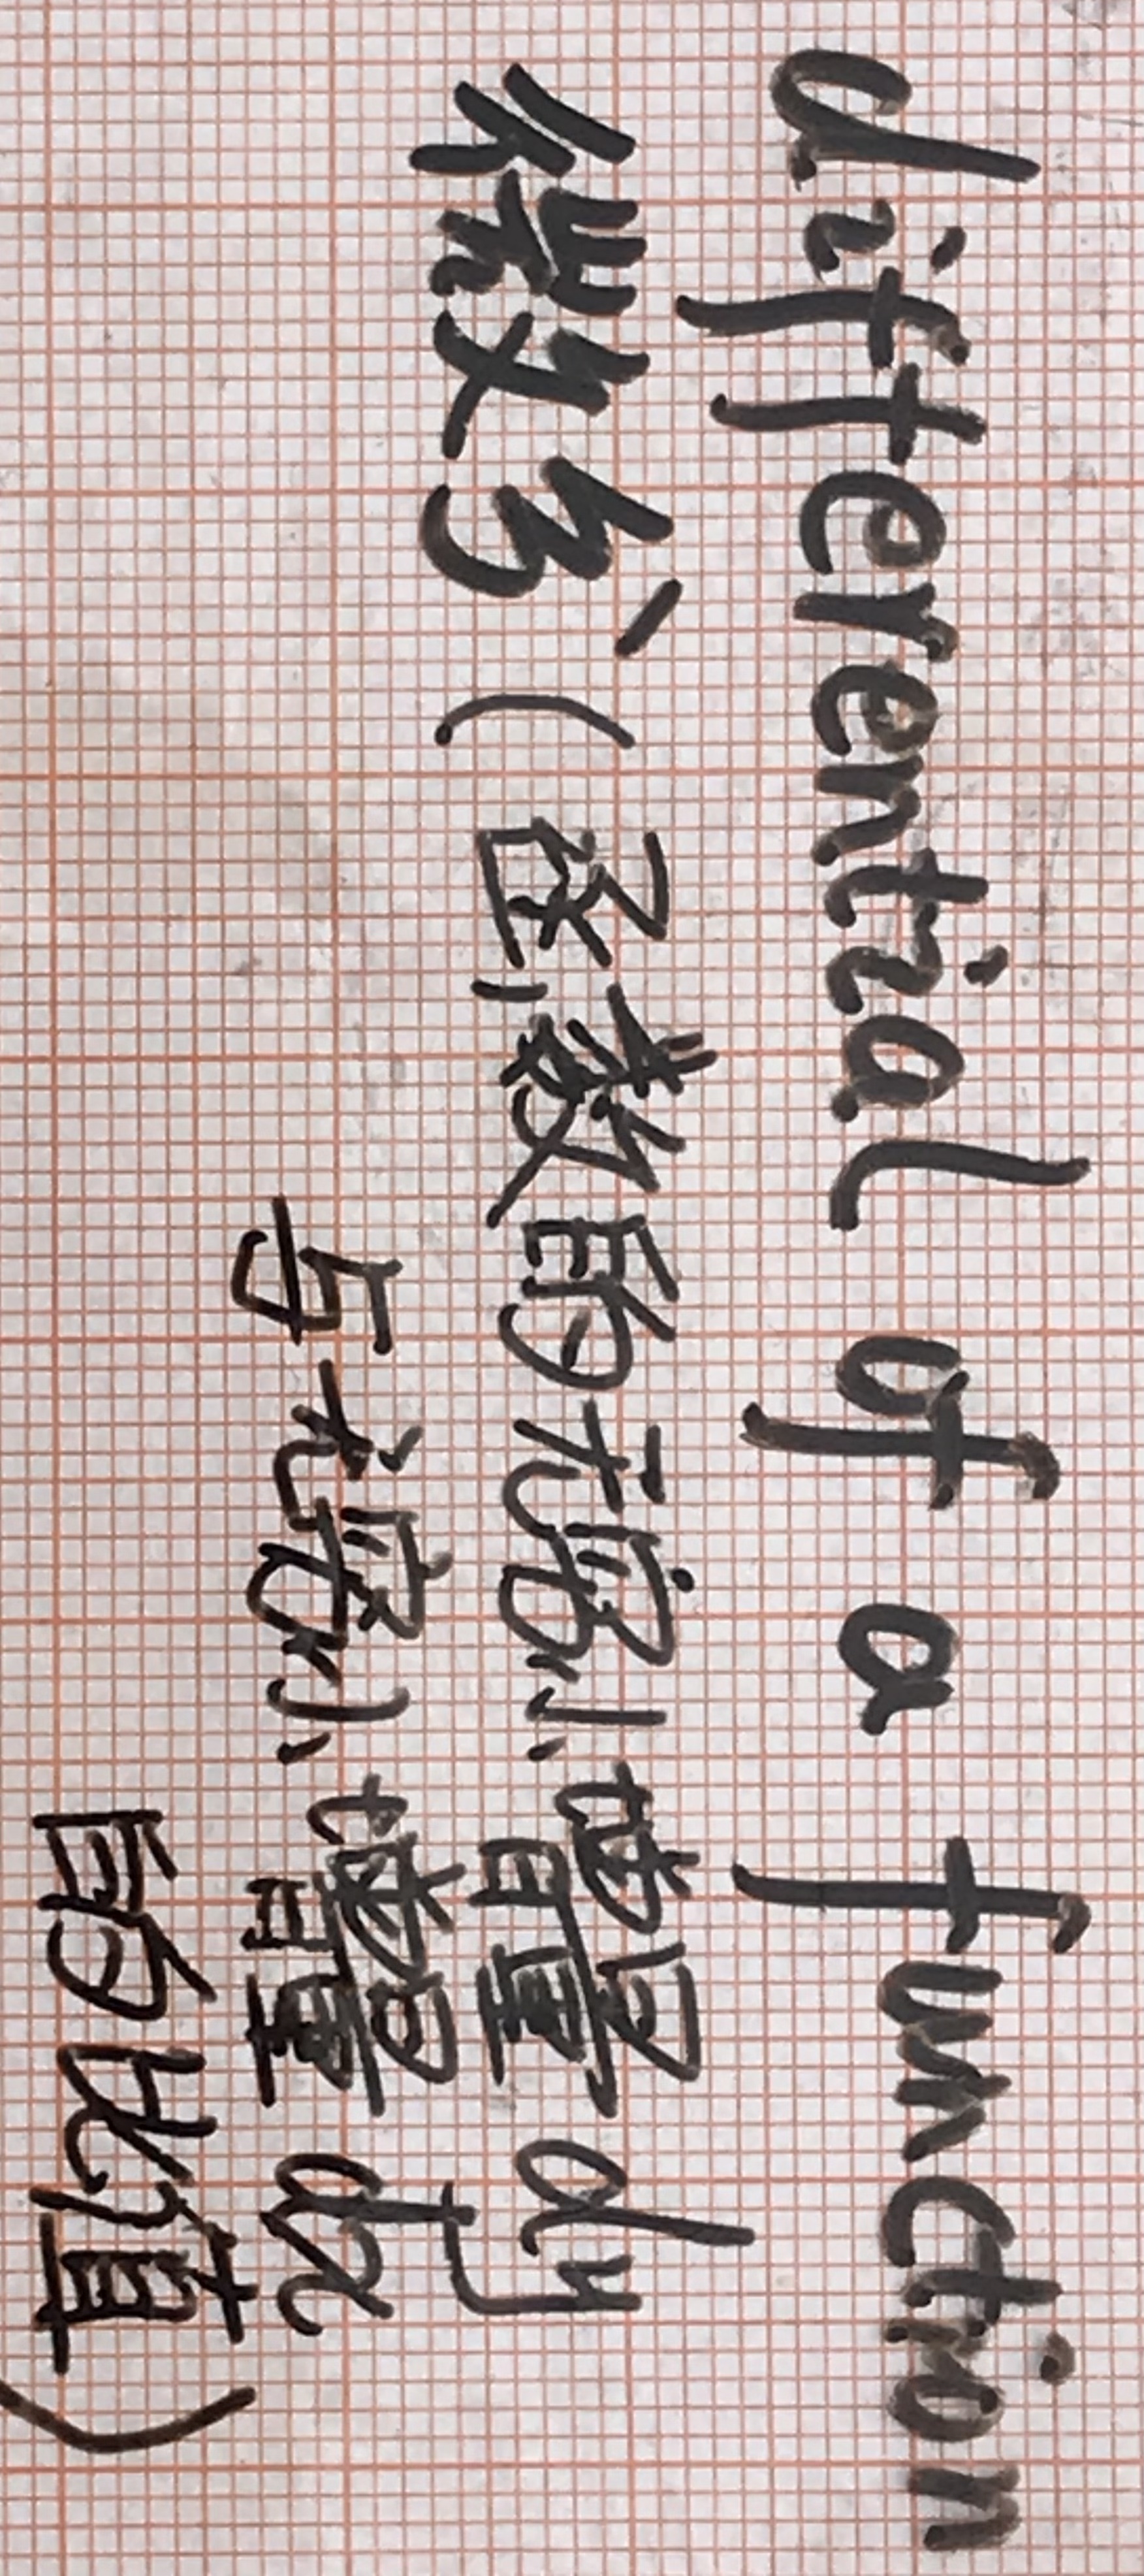 differential of a function
微分(函数的无穷小增量dy
与无穷小增量dx
的比值)